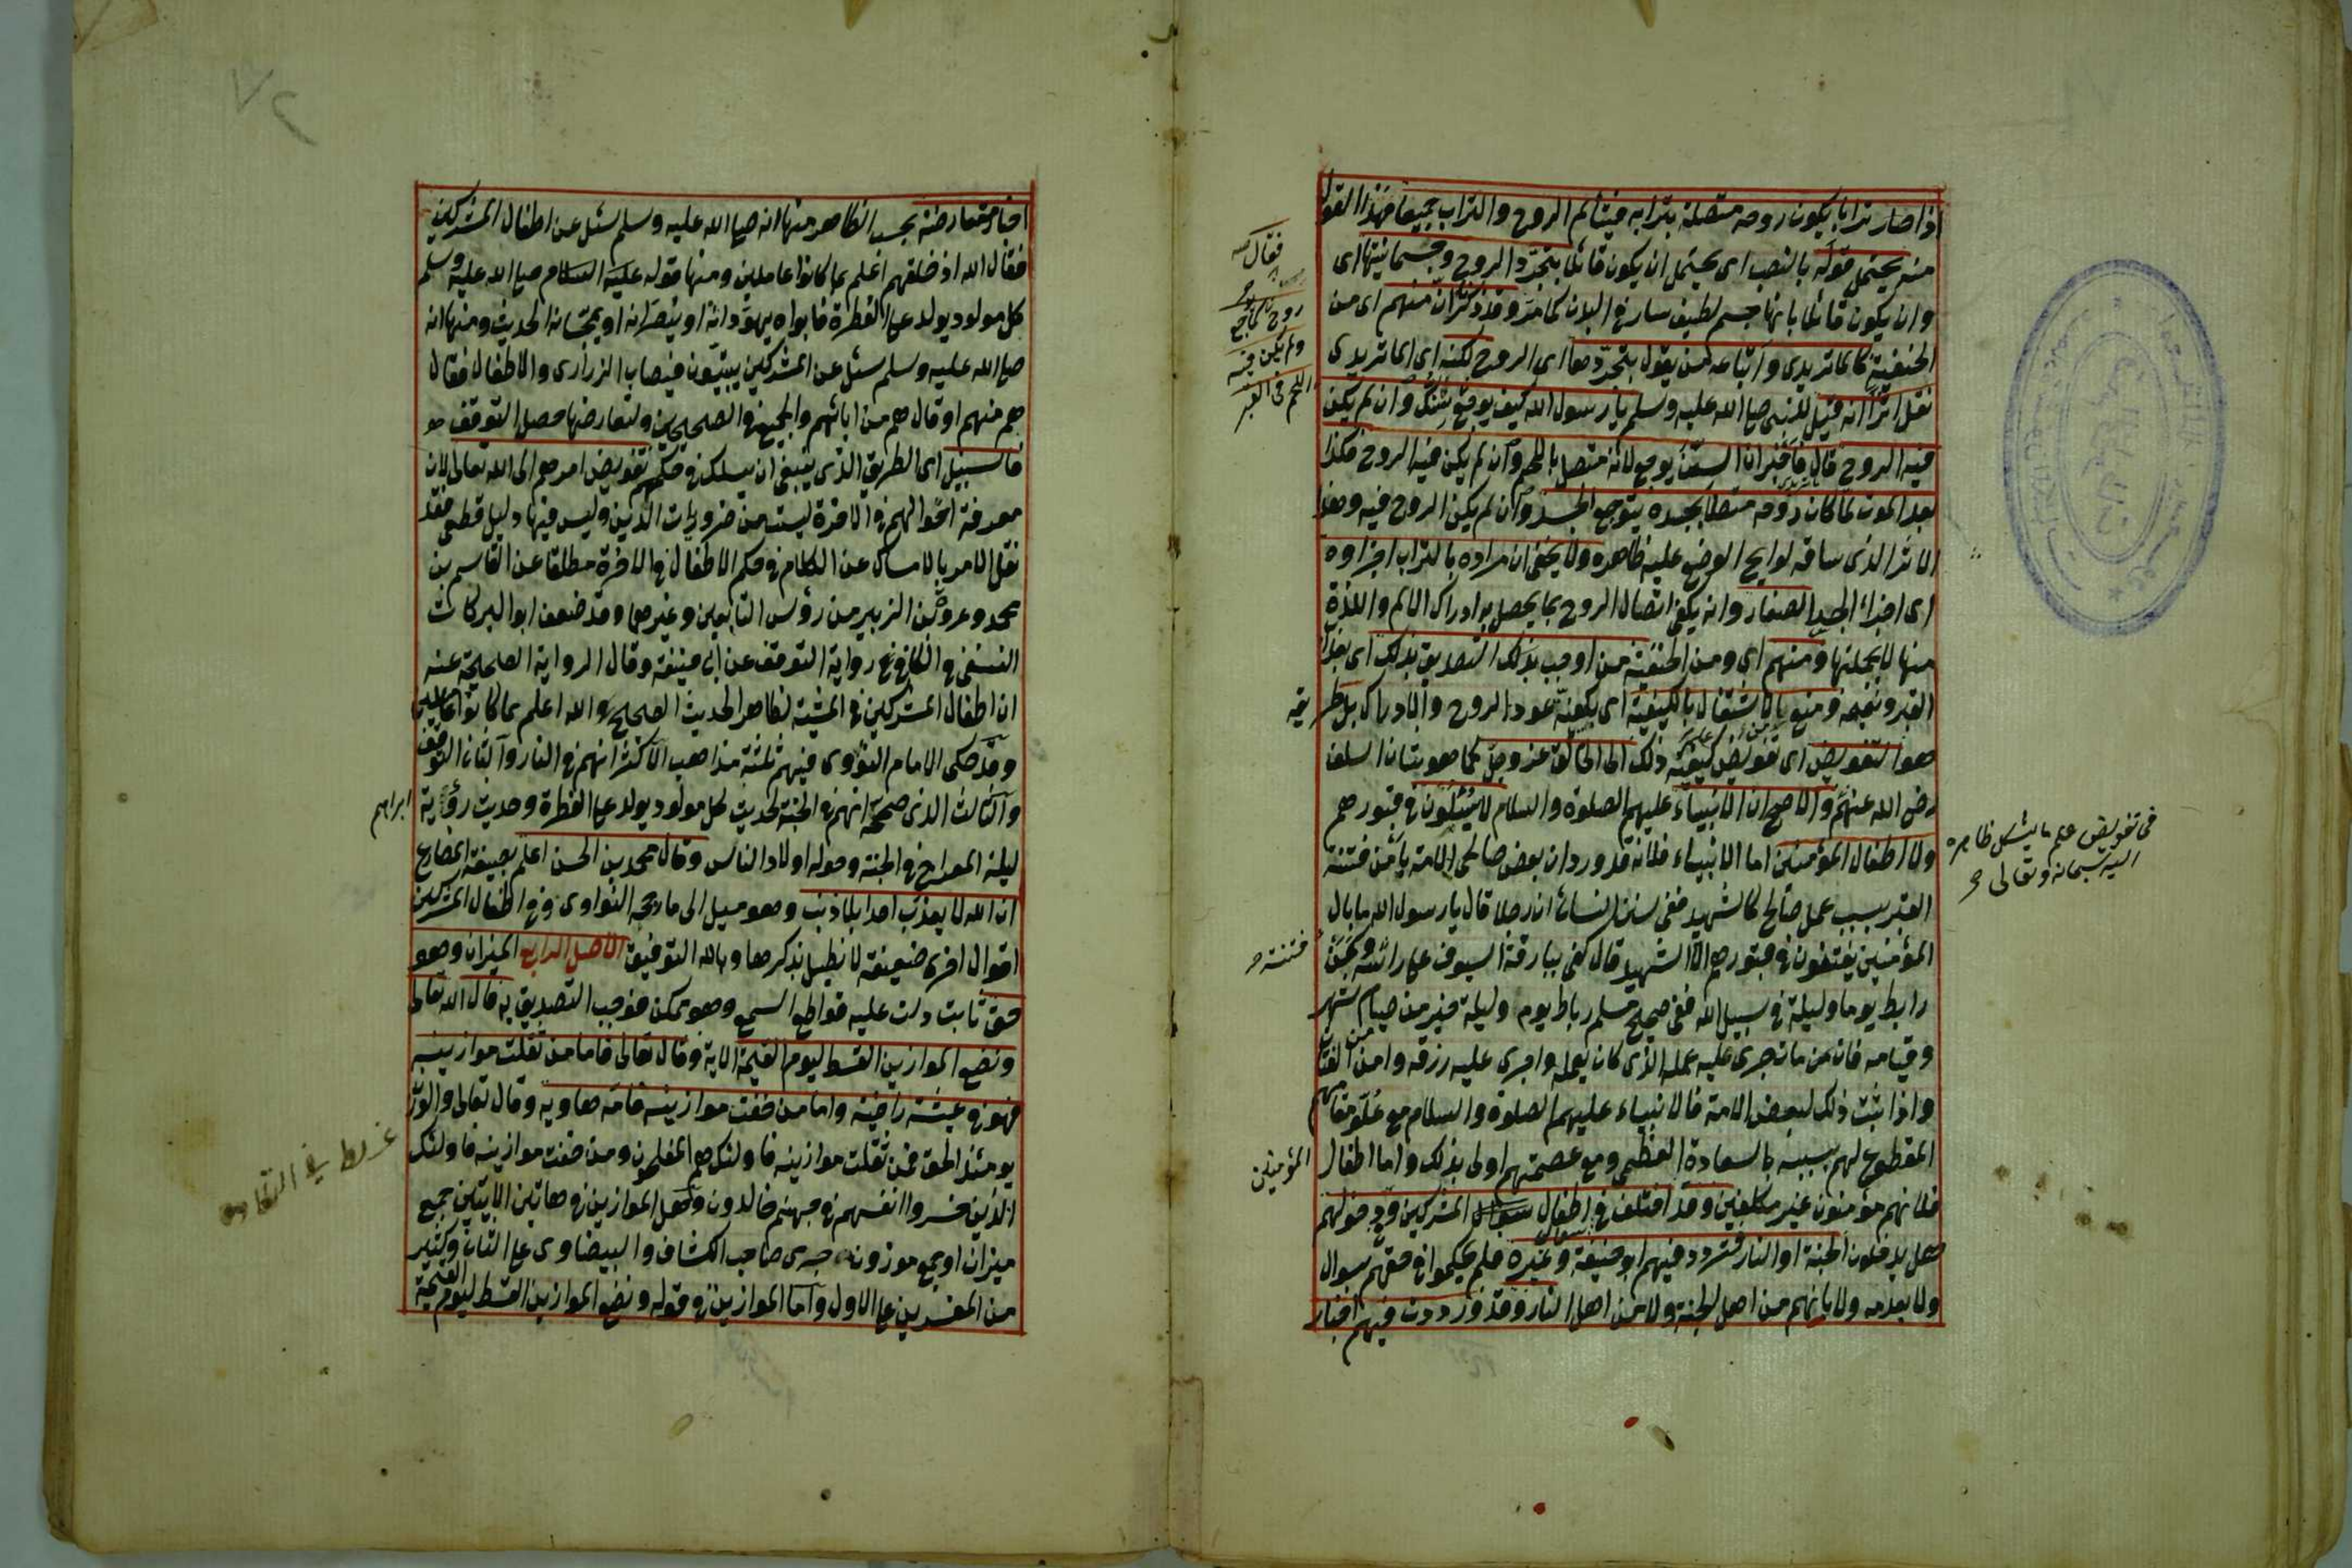 اذا صار ترابا يكون روحه متصلة بترابه فيتألم الروح والتراب جميعا فهذا القول
منه يحتمل قوله بالنصب اى يحتمل ان يكون قائلا بتجرد الروح وجسمانيتها اى
وان يكون قائلا بانها جسم لطيف سار فى البدن كما مر وقد ذكرنا ان منهم اى من
الحنفية كالماتريدى واتباعه من يقول بتجردها اى الروح لكنه اى الماتريدى
نقل اثرا انه قيل للنبى صلى الله عليه وسلم يا رسول الله كيف يوجع اللحم وان لم يكن
فيه الروح قال فاخبر ان السن يوجع لانه متصل باللحم وان لم يكن فيه الروح فكذا
بعد الموت لما كان روحه متصلا بجسده يتوجع الجسد وان لم يكن الروح فيه وهذا
الاثر الذى ساقه لوايح الوضع عليه ظاهرة ولا يخفى ان مراده بالتراب اجزاؤه
اى اجزاء الجسد الصغار وانه يكفى اتصال الروح بما يحصل به ادراك الالم واللذة
منها لا بجملتها ومنهم اى ومن الحنفية من اوجب بذلك التصديق بذلك اى بعذاب
القبر ونعيمه ومنع بالاشتغال بالكيفية اى بكيفية عود الروح والادراك بل طريقه
هو التفويض اى تفويض كيفية ذلك الى الخالق عز وجل كما هو شان السلف
رضى الله عنهم والاصح ان الانبياء عليهم الصلوة والسلام لا يسئلون فى قبورهم
ولا اطفال المؤمنين اما الانبياء فلانه قد ورد ان بعض صالحى الامة يأمن فتنة
القبر بسبب عمل صالح كالشهيد ففى سنن النسائى ان رجلا قال يا رسول الله ما بال
المؤمنين يفتنون فى قبورهم الا الشهيد قال كفى ببارقة السيوف على رأسه فتنة وكمن
رابط يوما وليلة فى سبيل الله ففى صحيح مسلم رباط يوم وليلة خير من صيام شهر
وقيامه فان من مات جرى عليه عمله الذى كان يعمله واجرى عليه رزقه وامن من الفتان
واذا ثبت ذلك لبعض الامة فالانبياء عليهم الصلوة والسلام مع علو مقامهم
المقطوع لهم بسببه بالسعادة العظمى ومع عصمتهم اولى بذلك واما اطفال المؤمنين
فلانهم مؤمنون غير مكلفين وقد اختلف فى سؤال اطفال المشركين وفى دخولهم
هل يدخلون الجنة او النار فتردد فيهم ابو حنيفة وغيره فلم يحكموا فى حقهم بسوال
ولا بعدمه ولا بانهم من اهل الجنة ولا من اهل النار وقد وردت فيهم اخبار
فقال
روح
ولم يكن فيه
اللحم فى القبر
فى تفويض علم ما يشكل ظاهره
اليه سبحانه وتعالى
اخبار متعارضة بحسب الظاهر منها انه صلى الله عليه وسلم سئل عن اطفال المشركين
فقال الله اذ خلقهم اعلم بما كانوا عاملين ومنها قوله عليه السلام صلى الله عليه وسلم
كل مولود يولد على الفطرة فابواه يهودانه او ينصرانه او يمجسانه الحديث ومنها انه
صلى الله عليه وسلم سئل عن المشركين يبيتون فيصاب الذرارى والاطفال فقال
هم منهم او قال هم من ابائهم والجميع فى الصحيحين ولتعارضها حصل التوقف
فالسبيل اى الطريق الذى ينبغى ان يسلك فى حكمهم تفويض امرهم الى الله تعالى لان
معرفة احوالهم فى الاخرة ليست من ضروريات الدين وليس فيها دليل قطعى فقد
نقل الامر بالامساك عن الكلام فى حكم الاطفال فى الاخرة مطلقا عن القاسم بن
محمد وعروة بن الزبير من رؤس التابعين وغيرهما وقد ضعف ابو البركات
النسفى فى الكافى رواية التوقف عن ابى حنيفة وقال الرواية الصحيحة عنه
ان اطفال المشركين فى المشية لظاهر الحديث الصحيح والله اعلم بما كانوا عاملين
وقد حكى الامام النووى فيهم ثلثة مذاهب الاكثر انهم فى النار والثانى التوقف
والثالث الذى صححه انهم فى الجنة لحديث كل مولود يولد على الفطرة وحديث رؤية ابراهيم
ليلة المعراج فى الجنة وحوله اولاد الناس وقال محمد بن الحسن اعلم بصيغة المضارع
ان الله لا يعذب احدا بلا ذنب وهو ميل الى ما رجحه النواوى وفى اطفال المشركين
اقوال اخر ضعيفة لا نطيل بذكرها وبالله التوفيق الاصل الرابع الميزان وهو
حق ثابت دلت عليه قواطع السمع وهو ممكن فوجب التصديق به قال الله تعالى
ونضع الموازين القسط ليوم القيمة الاية وقال تعالى فاما من ثقلت موازينه
فهو فى عيشة راضية واما من خفت موازينه فامه هاوية وقال تعالى والوزن
يومئذ الحق فمن ثقلت موازينه فاولئك هم المفلحون ومن خفت موازينه فاولئك
الذين خسروا انفسهم فى جهنم خالدون وهل الموازين فى هاتين الايتين جمع
ميزان او جمع موزون جرى صاحب الكشاف والبيضاوى على الثانى وكثير
من المفسرين على الاول واما الموازين فى قوله ونضع الموازين القسط ليوم القيمة